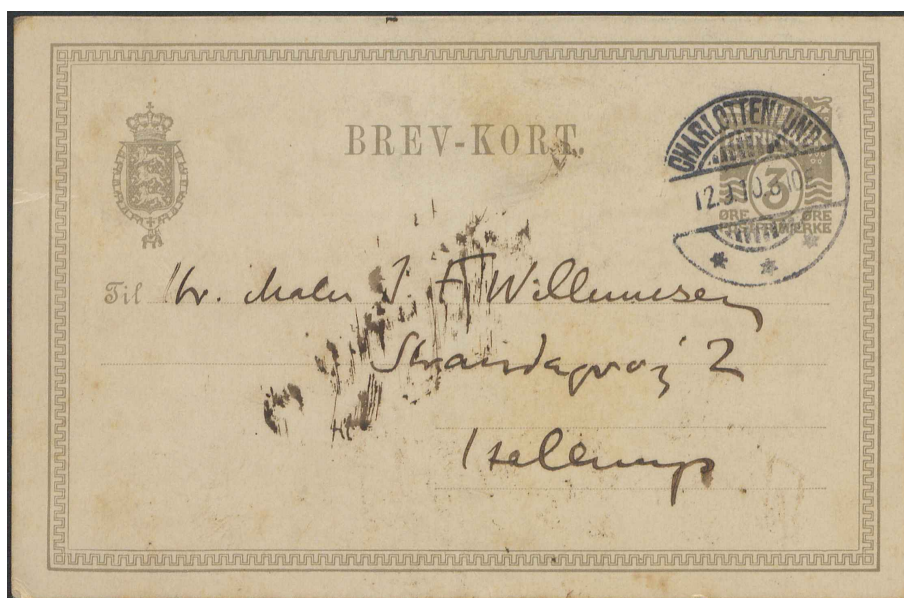 BREV-KORT.
CHARLOTTENLUND
3
ØRE ØRE
Til Hr. Maler J F Willumsen
Strandagervej 2
Hellerup